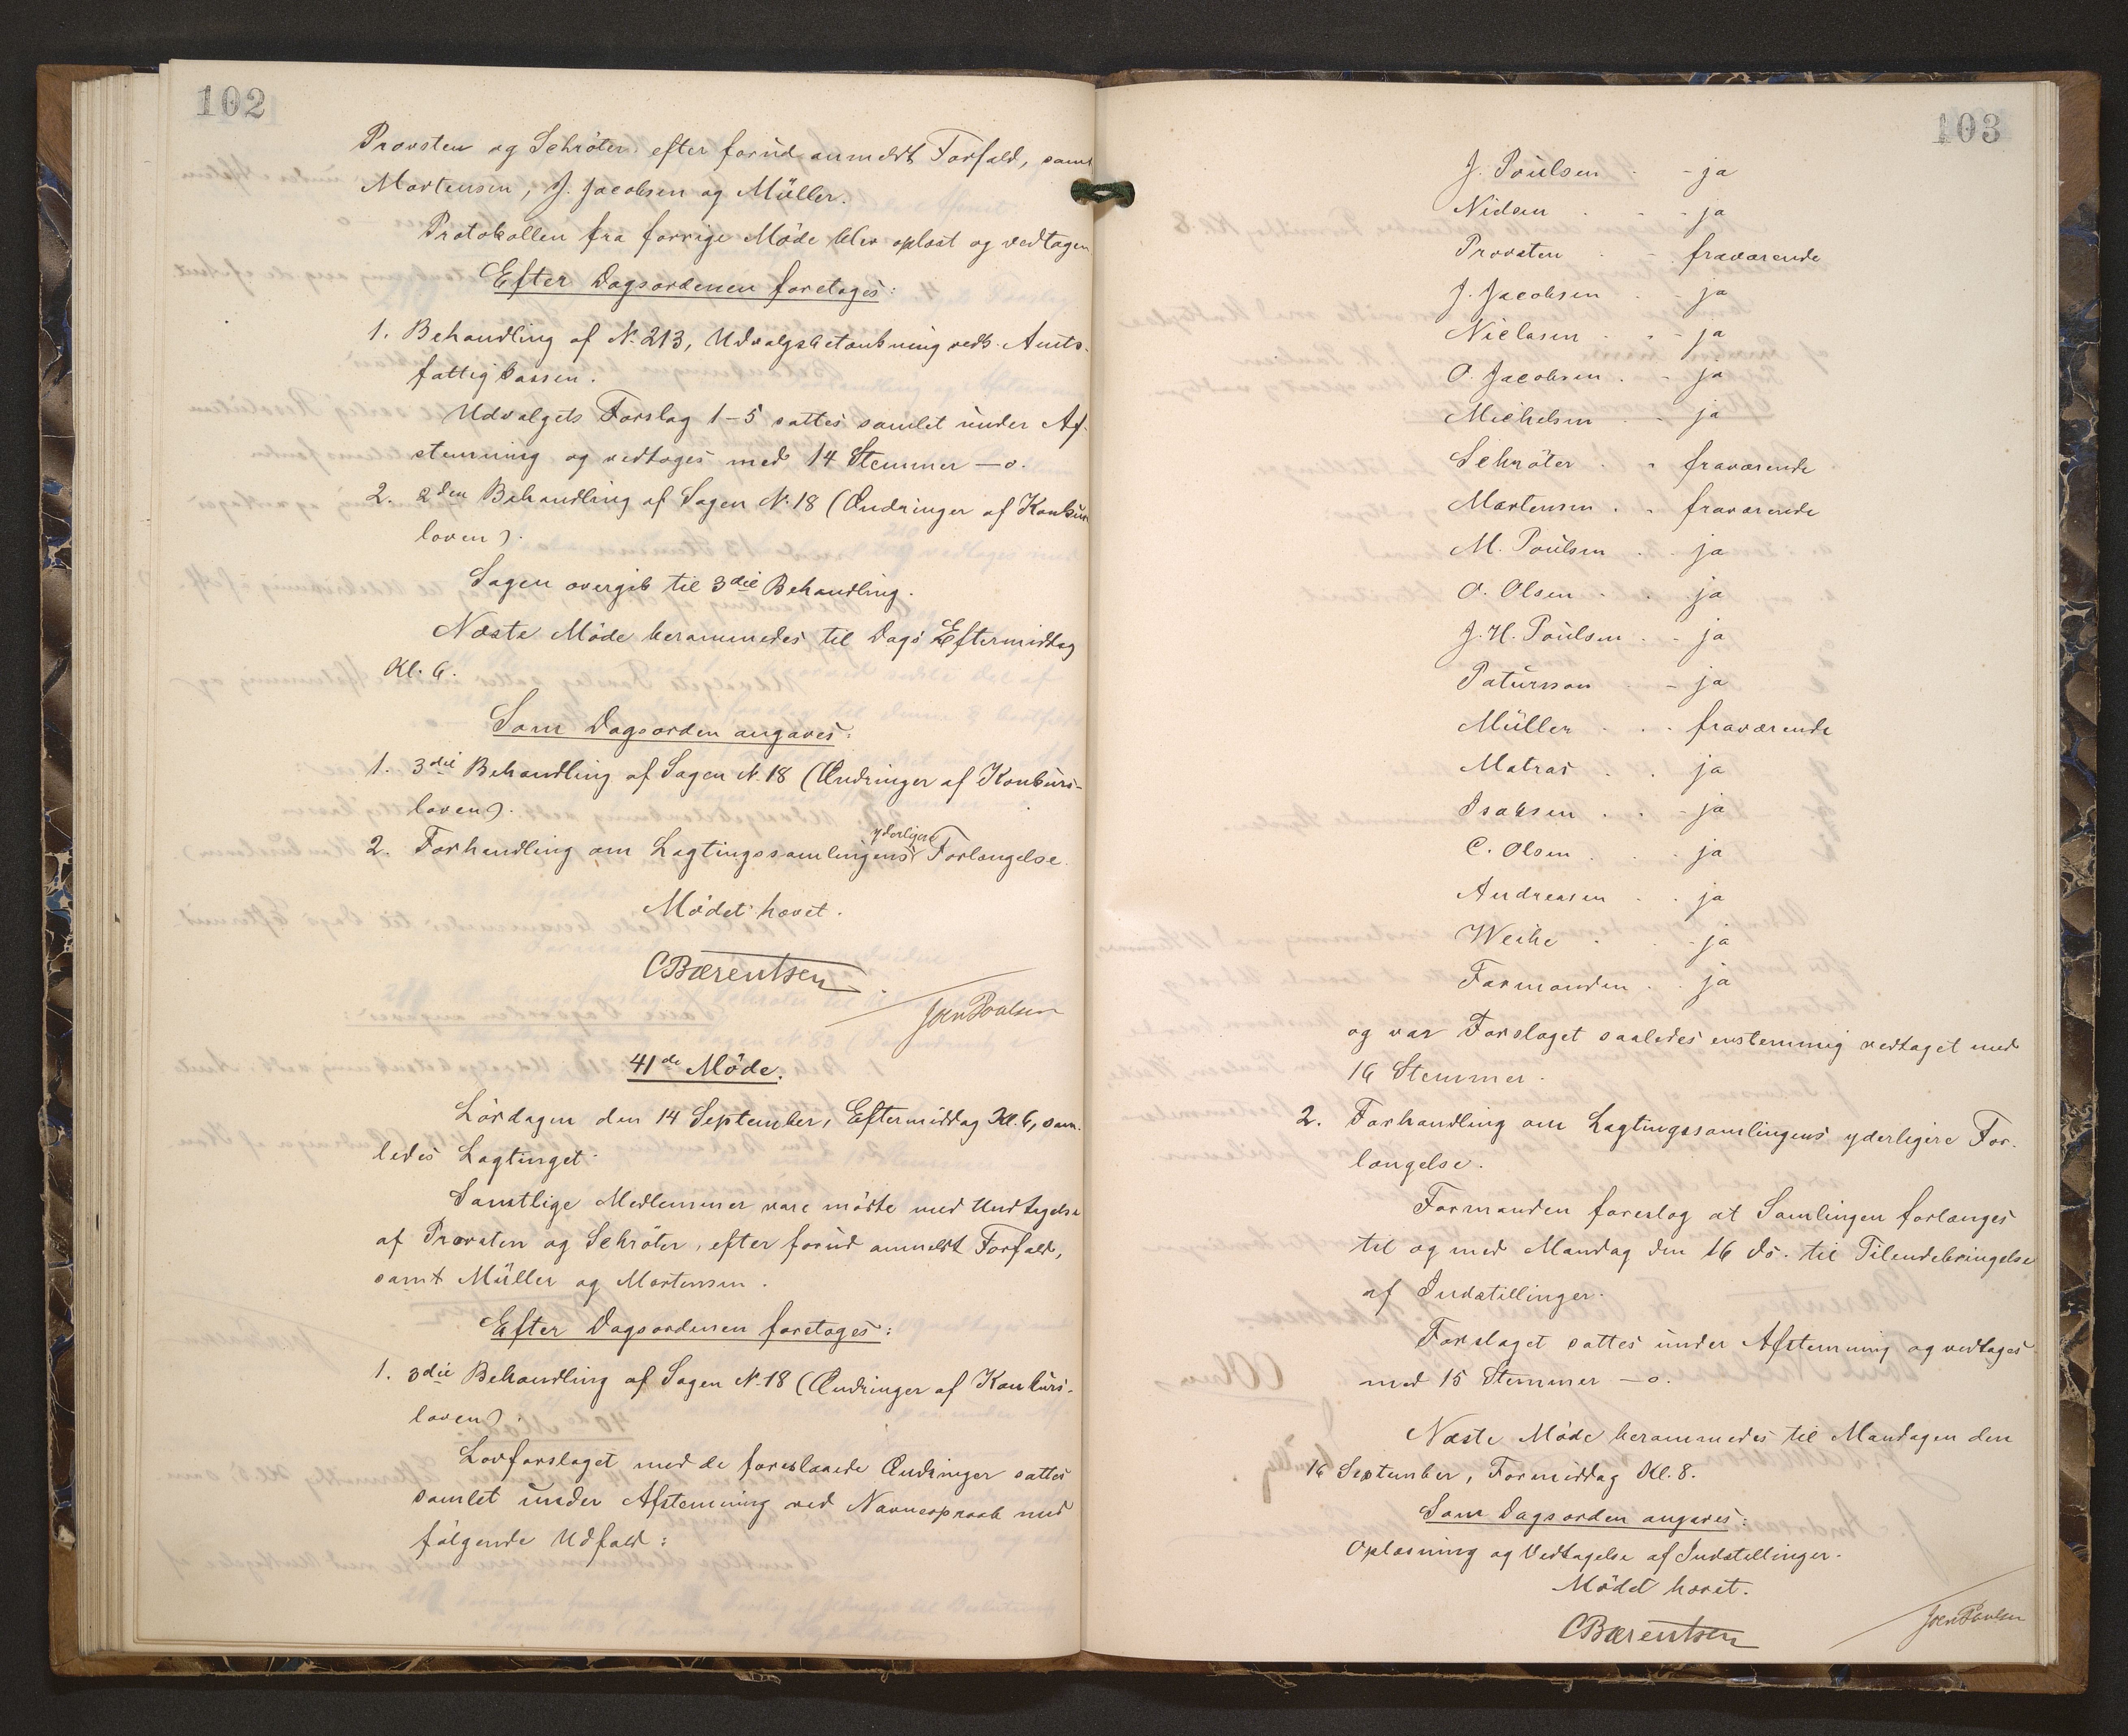 102
Provsten og Schröter, efter forud anmeldt Forfald, samt
Mortensen, J. Jacobsen og Müller.
Protokollen fra forrige Möde blev oplæst og vedtagen
Efter Dagsordenen foretoges:
1. Behandling af N. 213, Udvalgsbetænkning vedk. Amts-
fattigkassen.
Udvalgets Forslag 1-5 sattes samlet under Af-
stemning og vedtoges med 14 Stemmer — o.
2. 2den Behandling af Sagen N. 18 (Ændringer af Konkurs
loven).
Sagen overgik til 3die Behandling.
Næste Möde berammedes til Dags Eftermiddag
Kl. 6.
Som Dagsorden angaves:
1. 3die Behandling af Sagen N. 18 (Ændringer af Konkurs-
loven).
2. Forhandling om Lagtingssamlingens yderligere Forlængelse.
Mödet hævet.
CBærentsen
Joen Poulsen
41de Möde.
Lördagen den 14 September, Eftermiddag Kl. 6, sam-
ledes Lagtinget.
Samtlige Medlemmer vare mödte med Undtagelse
af Provsten og Schröter, efter forud anmeldt Forfald,
samt Müller og Mortensen.
Efter Dagsordenen foretoges:
1. 3die Behandling af Sagen N. 18 (Ændringer af Konkurs-
loven).
Lovforslaget med de foreslaaede Ændringer sattes
samlet under Afstemning ved Navneopraab med
fölgende Udfald:
103
J. Poulsen . - ja
Nielsen . - - ja
Provsten . - . fraværende
J. Jacobsen . - ja
Niclasen . . - ja
O. Jacobsen . - ja
Michelsen . - ja
Schröter . . fraværende
Mortensen . . fraværende
M. Poulsen . . ja
O. Olsen . . ja
J. H. Poulsen . - ja
Patursson . - ja
Müller . . . fraværende
Matras . . ja
Isaksen . . - ja
C. Olsen . . . ja
Andreasen . . ja
Weihe . . - ja
Formanden . . ja
og var Forslaget saaledes enstemmig vedtaget med
16 Stemmer.
2. Forhandling om Lagtingssamlingens yderligere For-
længelse.
Formanden foreslog at Samlingen forlænges
til og med Mandag den 16 ds. til Tilendebringelse
af Indstillinger.
Forslaget sattes under Afstemning og vedtoges
med 15 Stemmer — o.
Næste Möde berammedes til Mandagen den
16 September, Formiddag Kl. 8.
Som Dagsorden angaves:
Oplæsning og Vedtagelse af Indstillinger.
Mödet hævet.
CBærentsen
Joen Poulsen